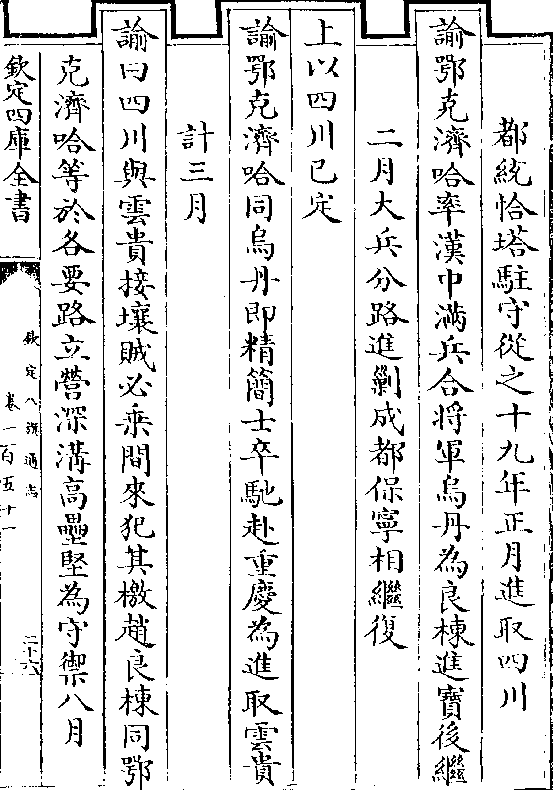 都統恰塔駐守從之十九年正月進取四川
諭鄂克濟哈率漢中滿兵合將軍烏丹為良棟進寶後繼
二月大兵分路進剿成都保寧相繼復
上以四川已定
諭鄂克濟哈同烏丹即精簡士卒馳赴重慶為進取雲貴
計三月
諭曰四川與雲貴接壤賊必乘間來犯其檄趙良棟同鄂
克濟哈等於各要路立營深溝高壘堅為守禦八月
欽定四庫全書
欽定八旗通志
卷一百五十一
二十六